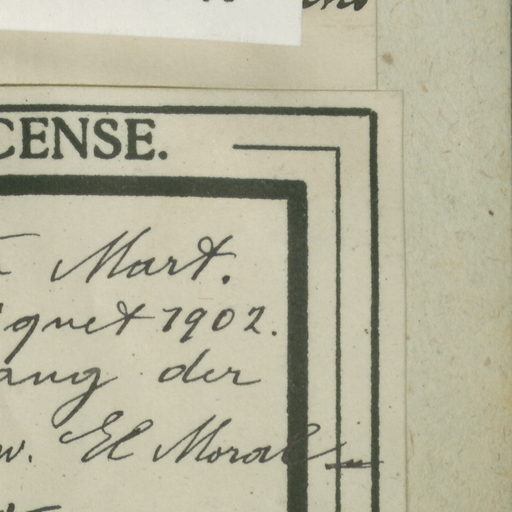 CENSE.
Mart.
gnet 1902.
ang der
w. El Moral-